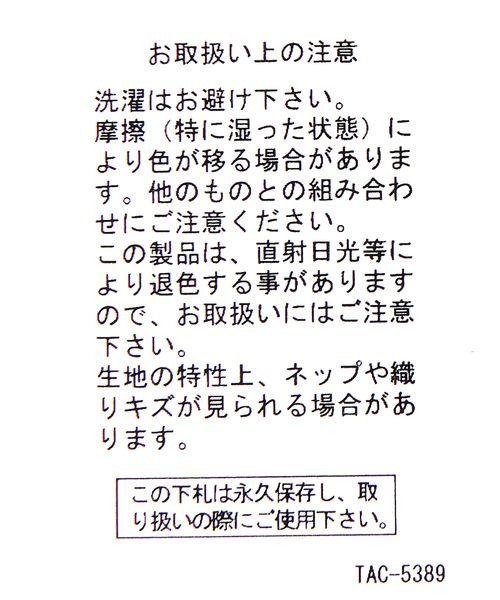 お取扱い上の注意
洗濯はお避け下さい。
摩擦（特に湿った状態）に
より色が移る場合がありま
す。他のものとの組み合わ
せにご注意ください。
この製品は、直射日光等に
より退色する事があります
ので、お取扱いにはご注意
下さい。
生地の特性上、ネップや織
りキズが見られる場合があ
ります。
この下札は永久保存し、取
り扱いの際にご使用下さい。
TAC-5389